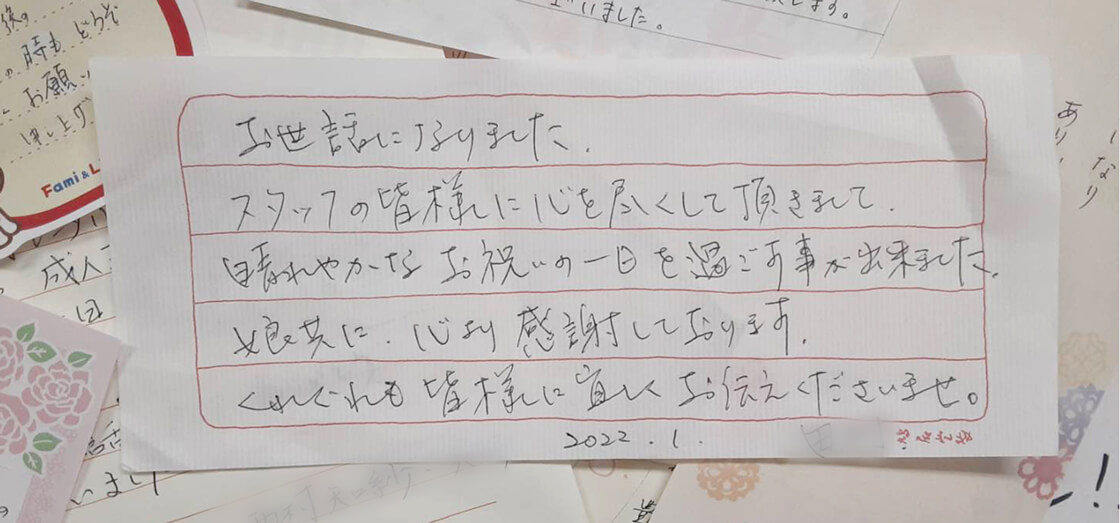 後の
時もどうぞ
お願い
申し上げ
Fami&L
いました。
ます。
お世話になりました.
スタッフの皆様に心を尽くして頂きまして.
晴れやかなお祝いの一日を過ごす事が出来ました.
娘共に.心より感謝しております.
くれぐれも皆様に宜しくお伝えくださいませ。
2022.1.
成人